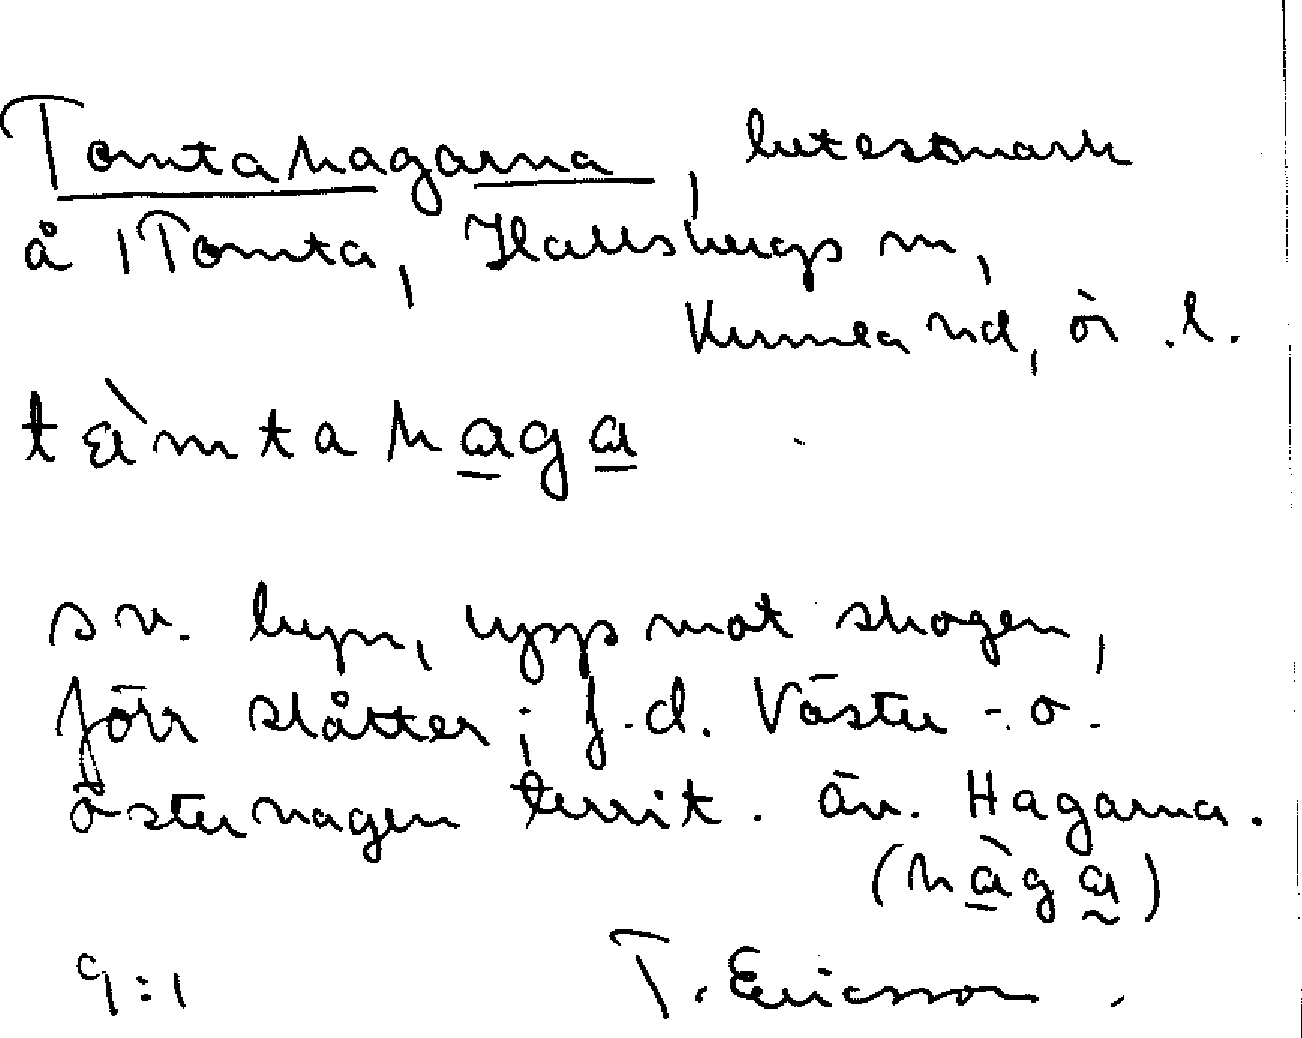 Tomtahagarna, betesmark
å 1 Tomta, Hallsbergs sn,
Kumla hd, ör. l.
sv. byn, upp mot skogen,
förr slåtter; f.d. Väster- o.
österhagen territ. än. Hagarna.
9:1 T. Ericsson.